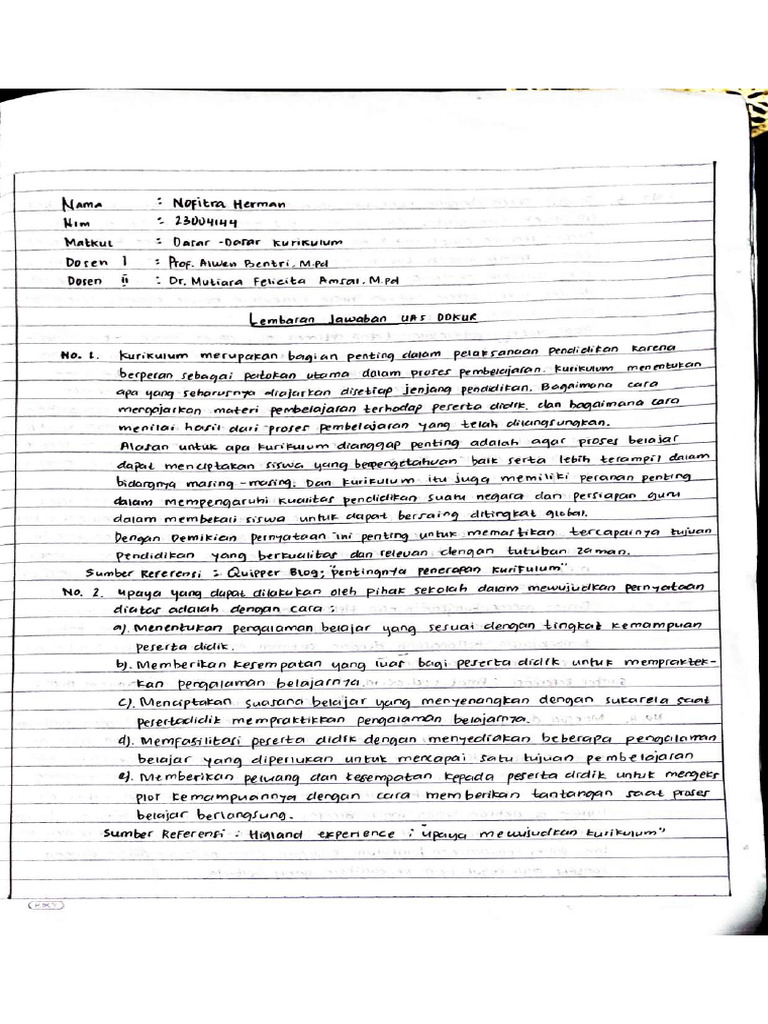 Nama : Nofitra Herman
Nim : 23004144
Matkul : Dasar-Dasar Kurikulum
Dosen I : Prof. Alwen Bentri, M.Pd
Dosen ii : Dr. Mutiara Felicita Amsal, M.Pd
Lembaran Jawaban UAS DDKUR
No. 1. Kurikulum merupakan bagian penting dalam pelaksanaan pendidikan karena
berperan sebagai patokan utama dalam proses pembelajaran. Kurikulum menentukan
apa yang seharusnya diajarkan disetiap jenjang pendidikan. Bagaimana cara
mengajarkan materi pembelajaran terhadap peserta didik, dan bagaimana cara
menilai hasil dari proses pembelajaran yang telah dilangsungkan.
Alasan untuk apa kurikulum dianggap penting adalah agar proses belajar
dapat menciptakan siswa yang berpengetahuan baik serta lebih terampil dalam
bidangnya masing-masing. Dan kurikulum itu juga memiliki peranan penting
dalam mempengaruhi kualitas pendidikan suatu negara dan persiapan guru
dalam membekali siswa untuk dapat bersaing ditingkat global.
Dengan Demikian pernyataan ini penting untuk memastikan tercapainya tujuan
Pendidikan yang berkualitas dan relevan dengan tutuban zaman.
Sumber Referensi : Quipper Blog; "pentingnya penerapan kurikulum"
No. 2. upaya yang dapat dilakukan oleh pihak sekolah dalam mewujudkan pernyataan
diatas adalah dengan cara :
a). Menentukan pengalaman belajar yang sesuai dengan tingkat kemampuan
peserta didik.
b). Memberikan kesempatan yang luas bagi peserta didik untuk mempraktek-
kan pengalaman belajarnya.
c). Menciptakan suasana belajar yang menyenangkan dengan sukarela saat
pesertadidik mempraktikkan pengalaman belajarnya.
d). Memfasilitasi peserta didik dengan menyediakan beberapa pengalaman
belajar yang diperlukan untuk mencapai satu tujuan pembelajaran
e). Memberikan peluang dan kesempatan kepada peserta didik untuk mengeks
plor kemampuannya dengan cara memberikan tantangan saat proses
belajar berlangsung.
Sumber Referensi : Higland experience ; "upaya mewujudkan kurikulum"